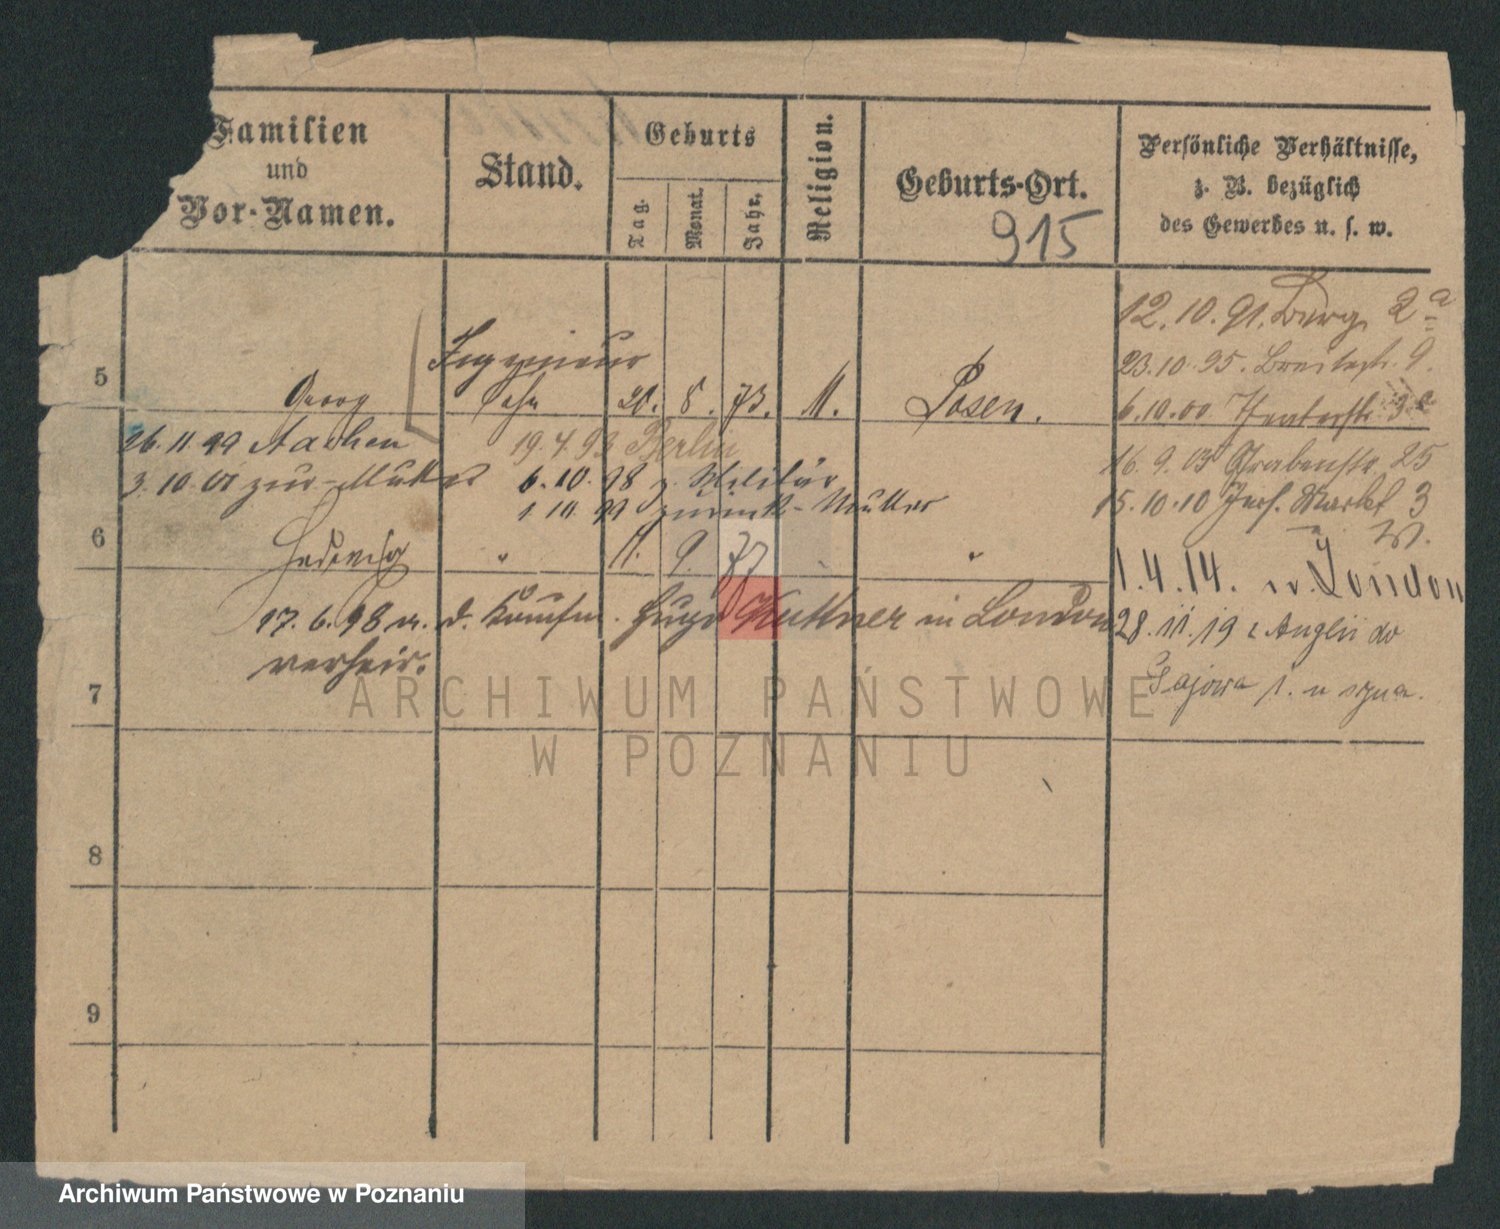 Familien
und
Vor-Namen.
Stand.
Geburts
Tag.
Monat.
Jahr.
Religion.
Geburts-Ort.
915
Persönliche Verhältnisse,
z. B. bezüglich
des Gewerbes u. s. w.
12.10.91. Burg 2a
23.10.95. Breitestr. 9.
Ingenieur
5 Georg 8. 73. M. Posen.
6.10.00
26.11.99 Aachen 19.4.93 Berlin
16.9.03 Grabenstr. 25
3.10.01 zur Mutter 6.10.98 z. Militär
1.10.99 zurück - Mutter
15.10.10 Markt 3
6 Hedwig " 11. 9. 77 "
1.4.14. n. London
17.6.98 m. d. Kaufm. Hugo Kuttner in London
28.11.19 z Anglii do
verheir.
Gajowa
7
8
9
ARCHIWUM PAŃSTWOWE
W POZNANIU
Archiwum Państwowe w Poznaniu